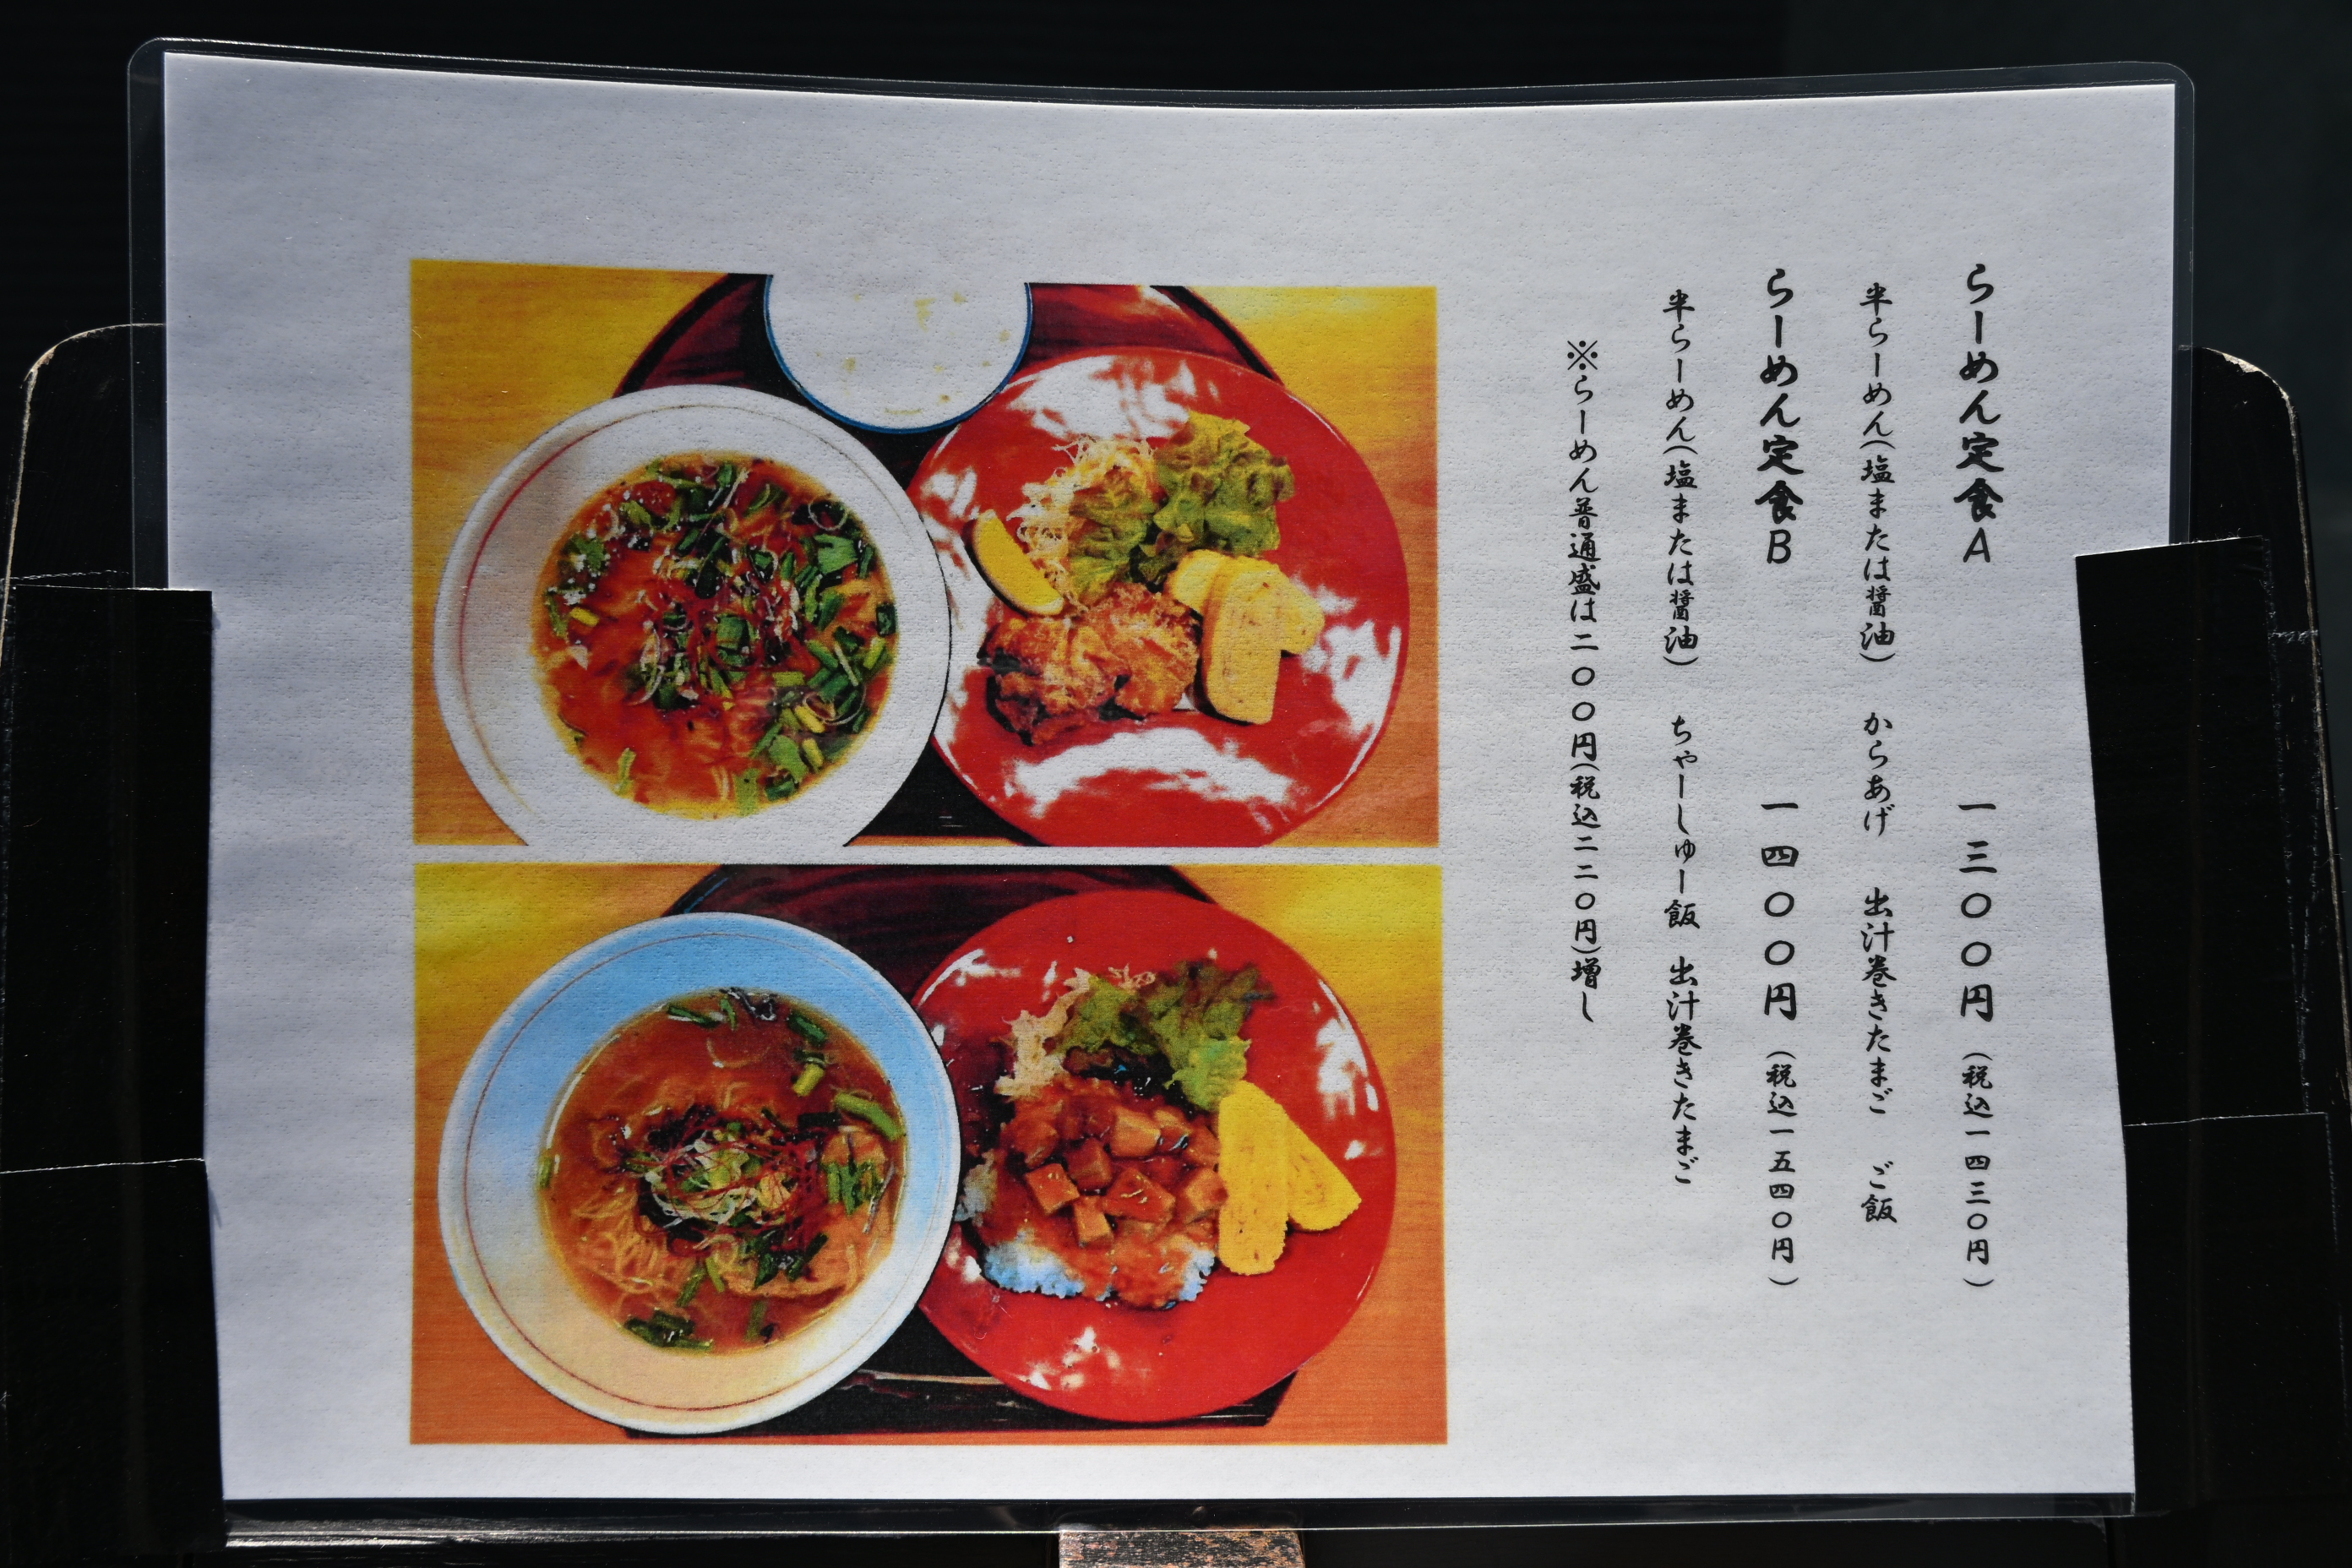 らーめん定食A 一三〇〇円(税込一四三〇円)
半らーめん(塩または醤油) からあげ 出汁巻きたまご ご飯
らーめん定食B 一四〇〇円(税込一五四〇円)
半らーめん(塩または醤油) ちゃーしゅー飯 出汁巻きたまご
※らーめん普通盛は二〇〇円(税込二二〇円)増し